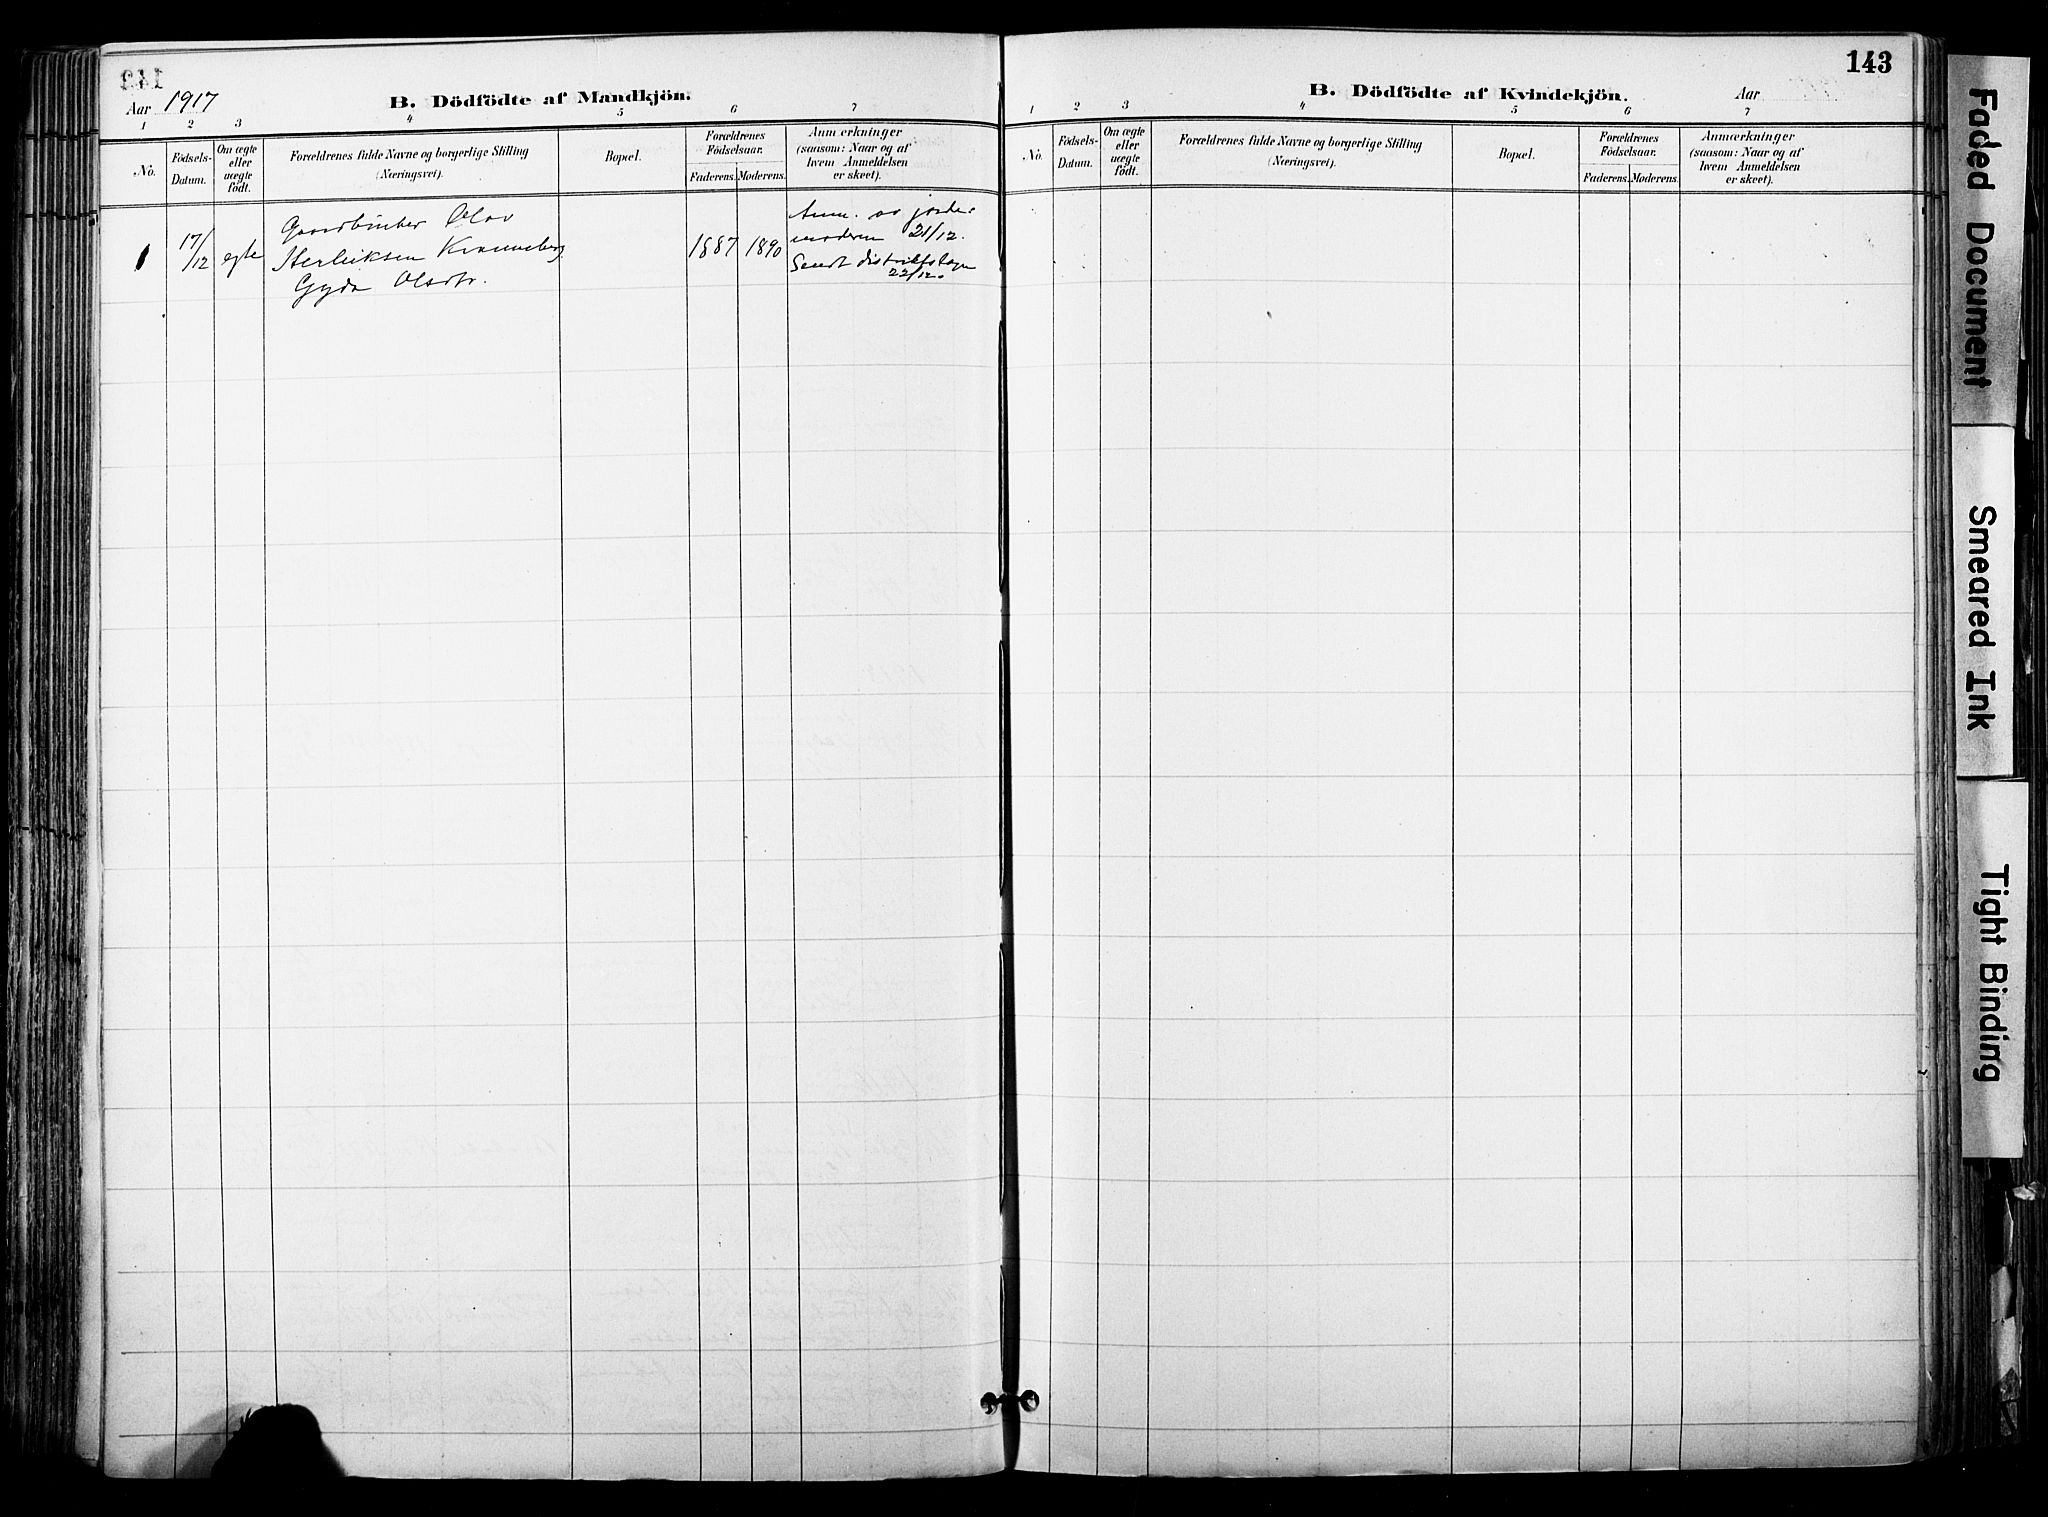 143
Aar 1917
B. Dödfödte af Mandkjön.
1 2 3 4 5 6 7
No.
Födsels-
Datum.
Om ægte
eller
uægte
födt.
Forældrenes fulde Navne og borgerlige Stilling
(Næringsvei).
Bopæl.
Forældrenes
Födselsaar.
Faderens. Moderens.
Anmærkninger
(saasom: Naar og af
hvem Anmeldelsen
er skeet).
1
17/12
egte
Gaardbruker Olav
Kranneberg
Gyda Olsdtr.
1887 1890
Anm. av jorde-
moderen 21/12.
Sendt distriktslægen
22/12.
143
B. Dödfödte af Kvindekjön.
Aar
1 2 3 4 5 6 7
No.
Födsels-
Datum.
Om ægte
eller
uægte
födt.
Forældrenes fulde Navne og borgerlige Stilling
(Næringsvei).
Bopæl.
Forældrenes
Födselsaar.
Faderens. Moderens.
Anmærkninger
(saasom: Naar og af
hvem Anmeldelsen
er skeet).
Faded Document
Smeared Ink
Tight Binding